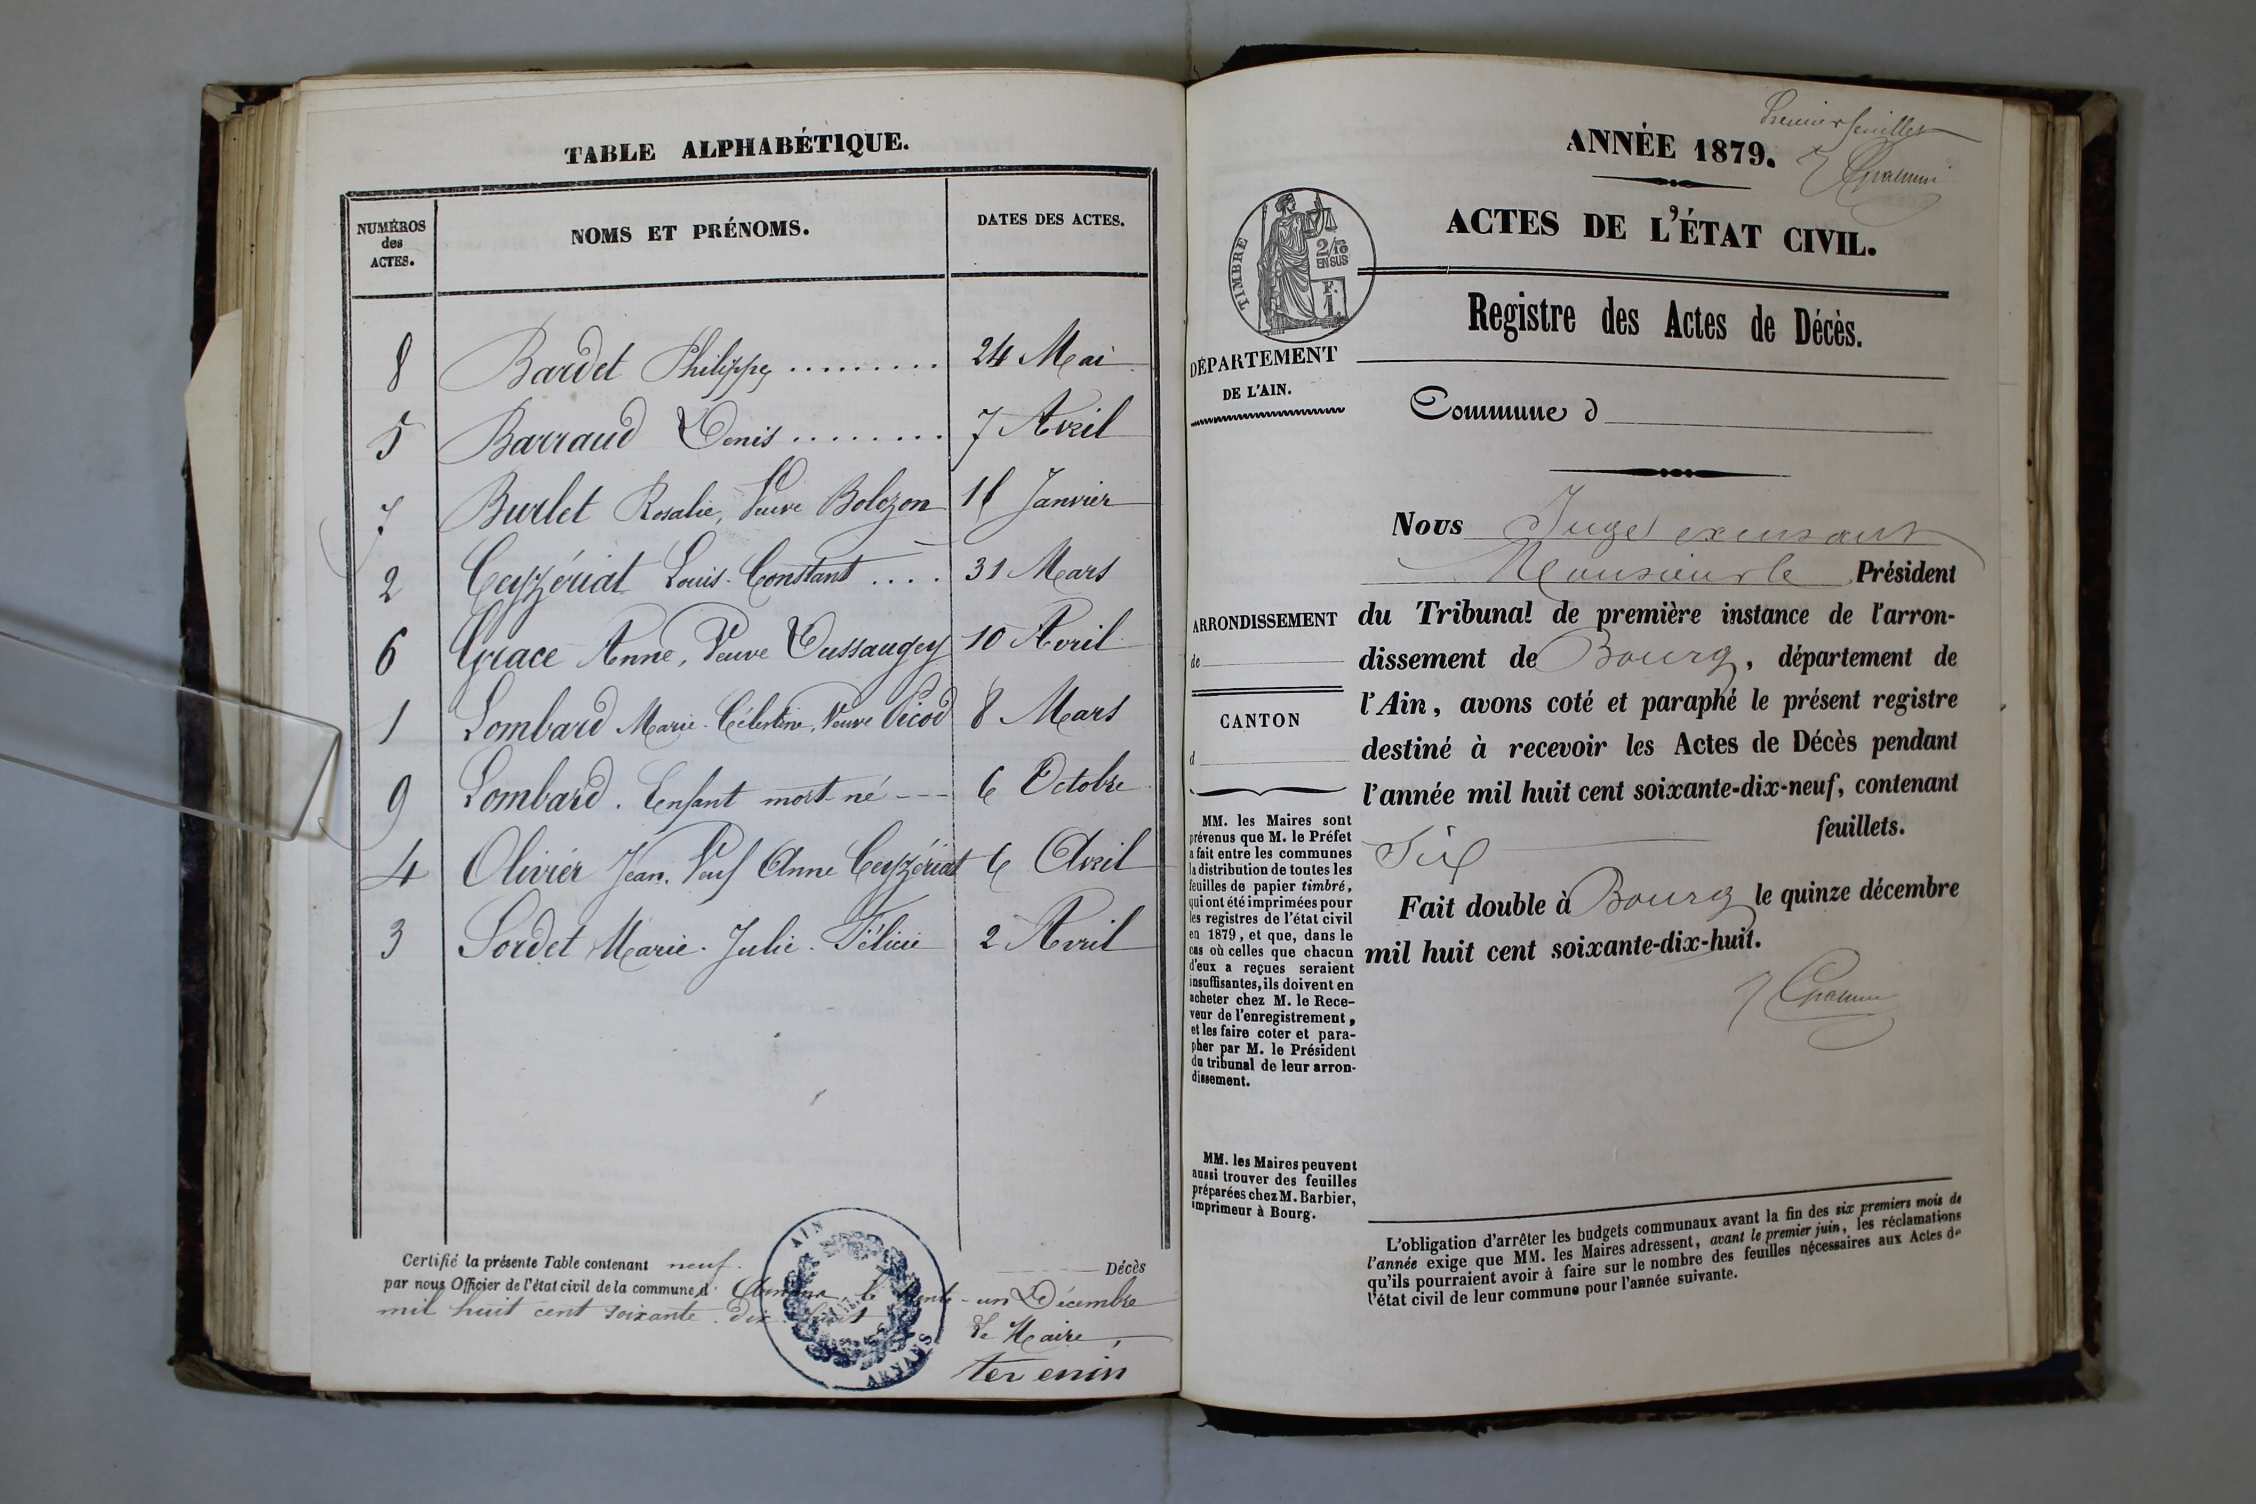 TABLE ALPHABÉTIQUE.
NUMÉROS des ACTES.
NOMS ET PRÉNOMS.
DATES DES ACTES.
8 Bardet Philippe ......... 24 Mai
5 Barraud Denis ........ 7 Avril
7 Burlet Rosalie, Veuve Bolozon 11 Janvier
2 Ceyzériat Louis-Constant .... 31 Mars
6 Grace Anne, Veuve Dussaugey 10 Avril
1 Lombard Marie-Célestine, Veuve Picod 8 Mars
9 Lombard. Enfant mort-né --- 6 Octobre
4 Olivier Jean. Veuf Anne Ceyzériat 6 Avril
3 Sordet Marie-Julie-Félicie 2 Avril
Certifié la présente Table contenant neuf. Décès
par nous Officier de l'état civil de la commune d' le trente-un Décembre
mil huit cent soixante-dix-huit
Le Maire,
AIN
ARNANS
ANNÉE 1879.
Premier feuillet
ACTES DE L'ÉTAT CIVIL.
TIMBRE
2/10
EN SUS
F.
1.
Registre des Actes de Décès.
DÉPARTEMENT
DE L'AIN.
Commune d
Nous Juge
Monsieur le Président
ARRONDISSEMENT
de
CANTON
d
du Tribunal de première instance de l'arron-
dissement de Bourg, département de
l'Ain, avons coté et paraphé le présent registre
destiné à recevoir les Actes de Décès pendant
l'année mil huit cent soixante-dix-neuf, contenant
Six feuillets.
Fait double à Bourg le quinze décembre
mil huit cent soixante-dix-huit.
MM. les Maires sont
prévenus que M. le Préfet
a fait entre les communes
la distribution de toutes les
feuilles de papier timbré,
qui ont été imprimées pour
les registres de l'état civil
en 1879, et que, dans le
cas où celles que chacun
d'eux a reçues seraient
insuffisantes, ils doivent en
acheter chez M. le Rece-
veur de l'enregistrement,
et les faire coter et para-
pher par M. le Président
du tribunal de leur arron-
dissement.
MM. les Maires peuvent
aussi trouver des feuilles
préparées chez M. Barbier,
imprimeur à Bourg.
L'obligation d'arrêter les budgets communaux avant la fin des six premiers mois de
l'année exige que MM. les Maires adressent, avant le premier juin, les réclamations
qu'ils pourraient avoir à faire sur le nombre des feuilles nécessaires aux Actes de
l'état civil de leur commune pour l'année suivante.